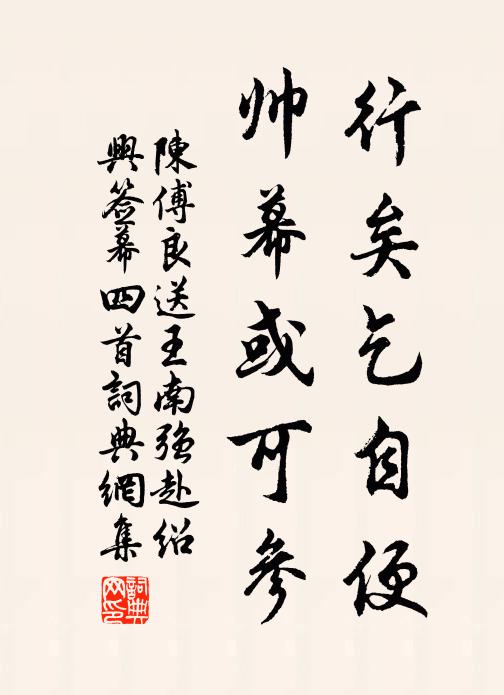 行矣乞自便
帅幕或可參
陳傅良送王南强赴绍
興签幕四首詞典網集
詞典网印